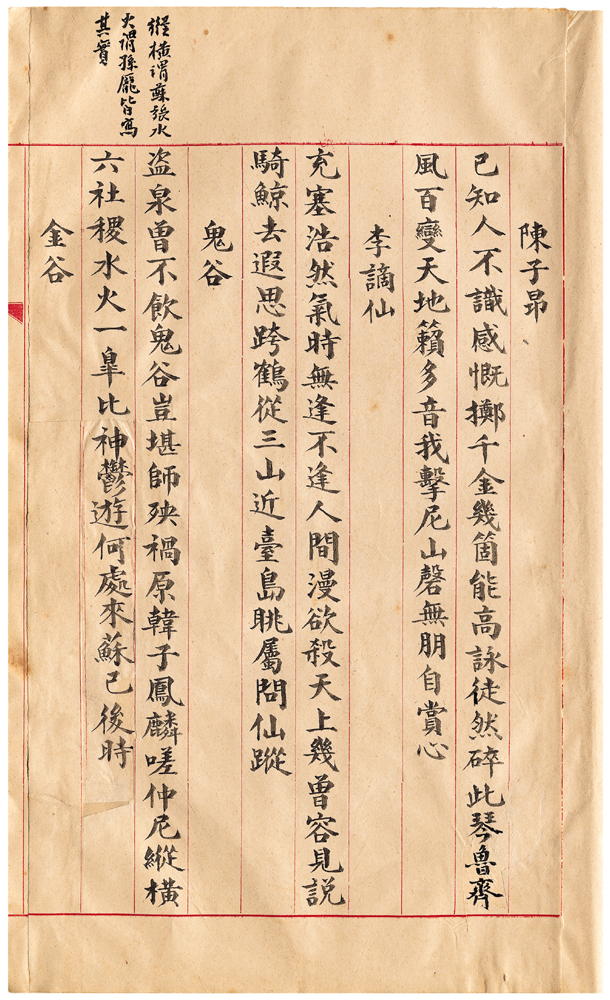 陳子昂
已知人不識感慨擲千金幾箇能高詠徒然碎此琴魯齊
風百變天地籟多音我擊尼山磬無朋自賞心
李謫仙
充塞浩然氣時無逢不逢人間漫欲殺天上幾曾容見説
騎鯨去遐思跨鶴從三山近臺島眺屬問仙蹤
鬼谷
縱橫謂蘇張水
火謂孫龐皆寫
其實
盜泉曾不飲鬼谷豈堪師殃禍原韓子鳳麟嗟仲尼縱橫
六社稷水火一皐比神鬱遊何處來蘇已後時
金谷